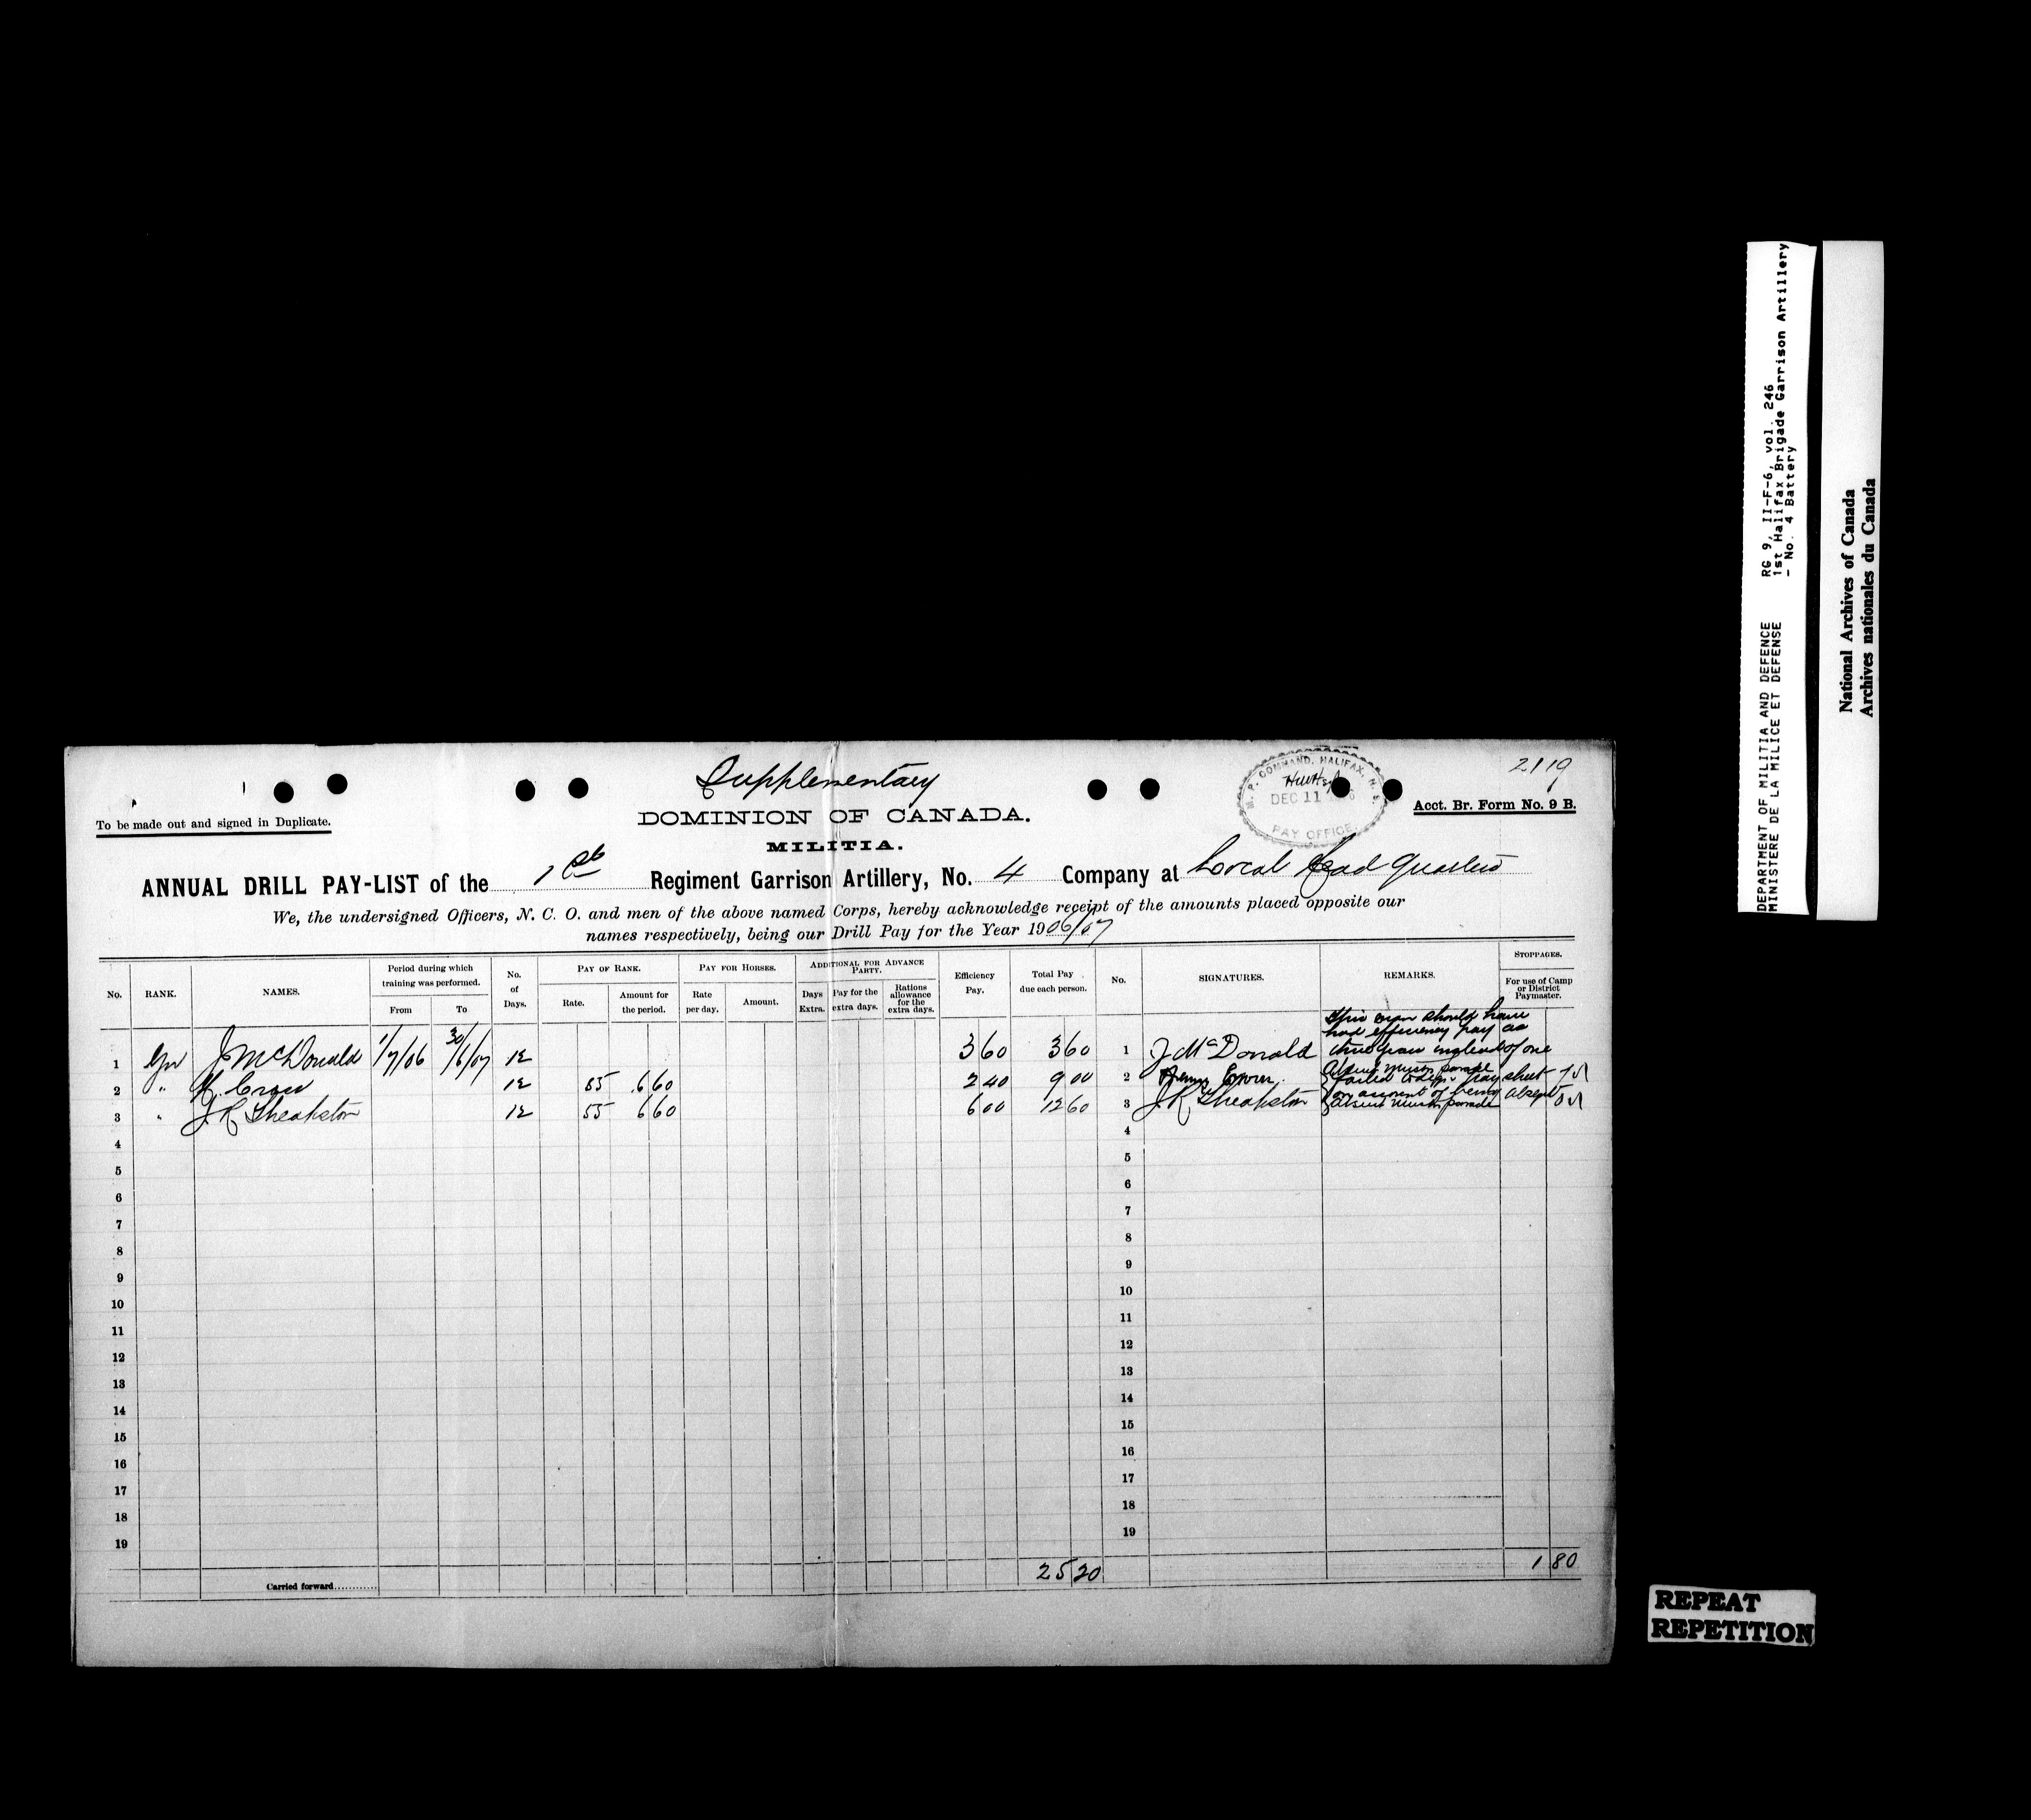 Supplementary
2119
M. P. COMMAND, HALIFAX, N. S.
DEC 11
PAY OFFICE
To be made out and signed in Duplicate.
DOMINION OF CANADA.
Acct. Br. Form No. 9 B.
MILITIA.
ANNUAL DRILL PAY-LIST of the 1st Regiment Garrison Artillery, No. 4 Company at Local Head Quarters
We, the undersigned Officers, N. C. O. and men of the above named Corps, hereby acknowledge receipt of the amounts placed opposite our
names respectively, being our Drill Pay for the Year 1906/07
No. RANK. NAMES. Period during which training was performed. From To No. of Days. PAY OF RANK. Rate. Amount for the period. PAY FOR HORSES. Rate per day. Amount. ADDITIONAL FOR ADVANCE PARTY. Days Extra. Pay for the extra days. Rations allowance for the extra days. Efficiency Pay. Total Pay due each person. No. SIGNATURES. REMARKS. STOPPAGES. For use of Camp or District Paymaster.
This man should have
had efficiency pay as
1 Gnr J McDonald 1/7/06 30/6/07 12 3 60 3 60 1 J McDonald three year instead of one
2 " H. Crow 12 55 6 60 2 40 9 00 2 failed to sign pay sheet
3 " J. R. Theakston 12 55 6 60 6 00 12 60 3 J R Theakston on account of being absent
4 4
5 5
6 6
7 7
8 8
9 9
10 10
11 11
12 12
13 13
14 14
15 15
16 16
17 17
18 18
19 19
Carried forward............ 25 20 1 80
DEPARTMENT OF MILITIA AND DEFENCE
MINISTERE DE LA MILICE ET DEFENSE
RG 9, II-F-6, vol. 246
1st Halifax Brigade Garrison Artillery
- No. 4 Battery
National Archives of Canada
Archives nationales du Canada
REPEAT
REPETITION